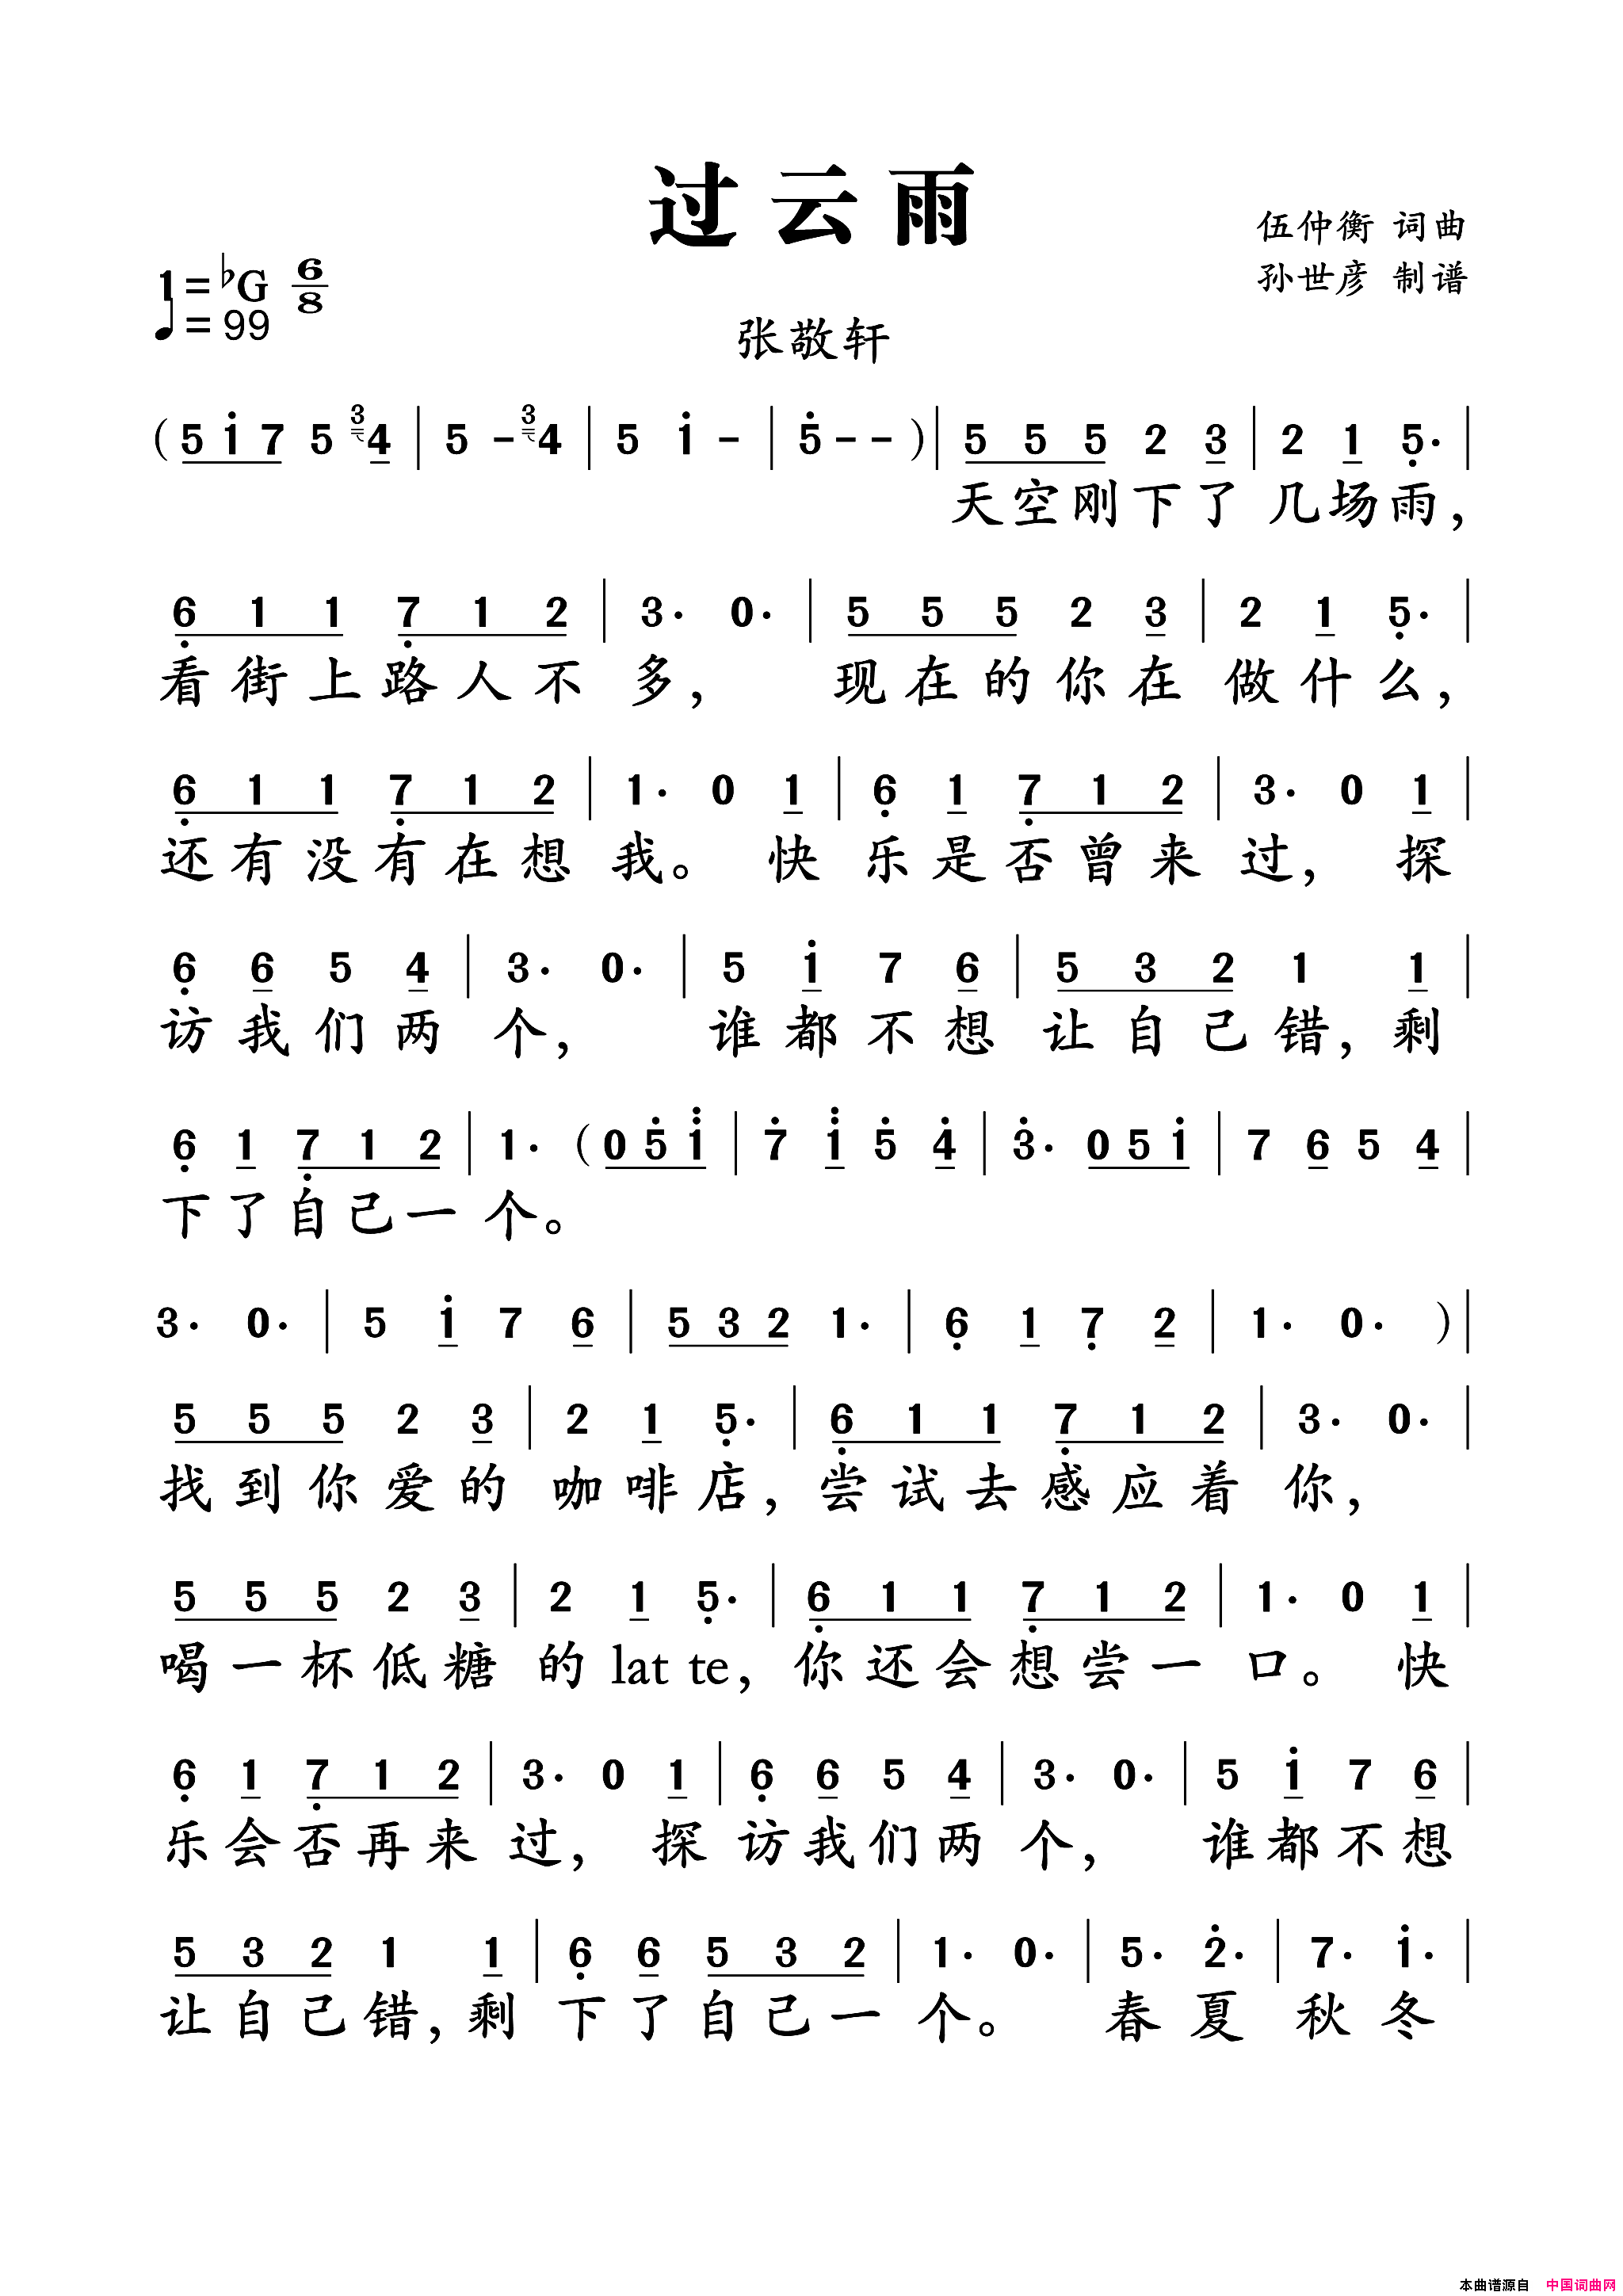 过云雨
伍仲衡 词曲
孙世彦 制谱
1=♭G 6/8
♩=99
张敬轩
(5 i 7 5 3 4 | 5 - 3 4 | 5 i - | 5 - - ) | 5 5 5 2 3 | 2 1 5· |
天空刚下了 几场雨,
6 1 1 7 1 2 | 3· 0· | 5 5 5 2 3 | 2 1 5· |
看街上路人不 多, 现在的你在 做什么,
6 1 1 7 1 2 | 1· 0 1 | 6 1 7 1 2 | 3· 0 1 |
还有没有在想 我。 快 乐是否曾来 过, 探
6 6 5 4 | 3· 0· | 5 i 7 6 | 5 3 2 1 1 |
访我们两 个, 谁都不想 让自己错,剩
6 1 7 1 2 | 1· (0 5 i | 7 i 5 4 | 3· 0 5 i | 7 6 5 4 |
下了自己一 个。
3· 0· | 5 i 7 6 | 5 3 2 1· | 6 1 7 2 | 1· 0· ) |
5 5 5 2 3 | 2 1 5· | 6 1 1 7 1 2 | 3· 0· |
找到你爱的 咖啡店, 尝试去感应着 你,
5 5 5 2 3 | 2 1 5· | 6 1 1 7 1 2 | 1· 0 1 |
喝一杯低糖 的 lat te, 你还会想尝一 口。 快
6 1 7 1 2 | 3· 0 1 | 6 6 5 4 | 3· 0· | 5 i 7 6 |
乐会否再来 过, 探 访我们两 个, 谁都不想
5 3 2 1 1 | 6 6 5 3 2 | 1· 0· | 5· 2· | 7· i· |
让自己错,剩 下了自己一 个。 春夏 秋冬
本曲谱源自 中国词曲网